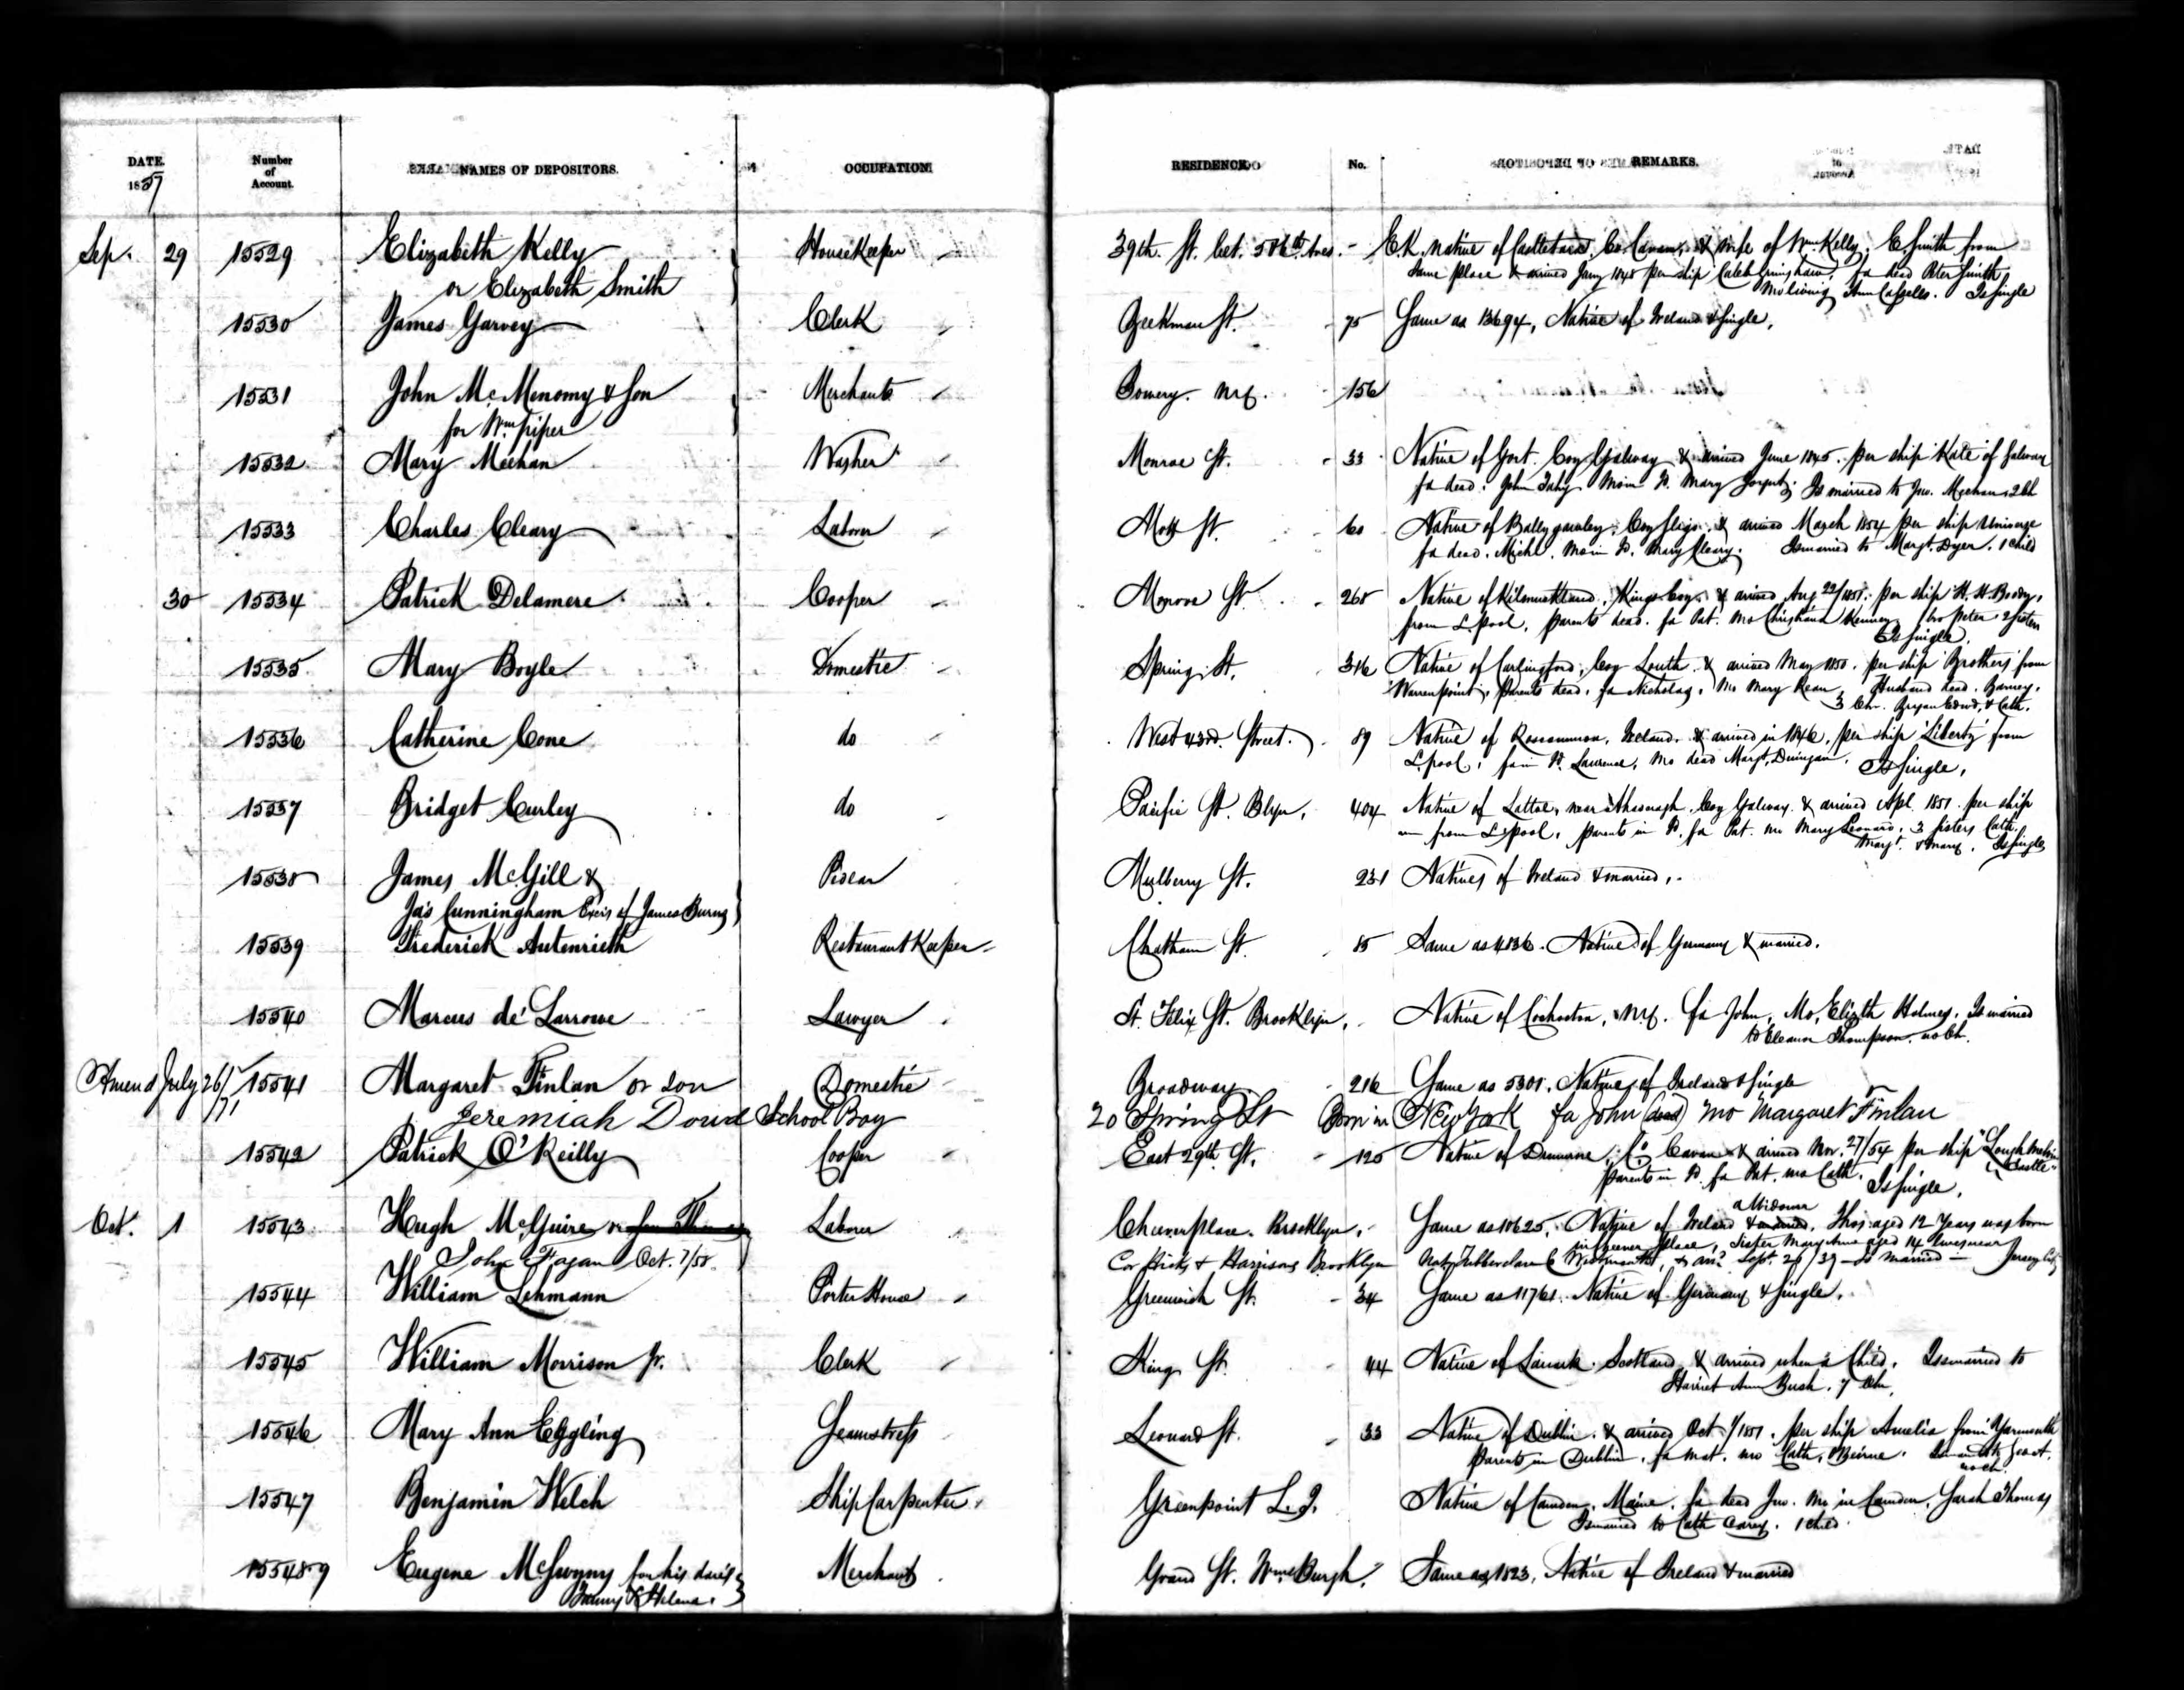 DATE. Number of Account. NAMES OF DEPOSITORS. OCCUPATION RESIDENCE No. REMARKS.
1857
Sep. 29 15529 Elizabeth Kelly HouseKeeper 39th. St. bet. 5 & 6th Aves. - E.K. Native of Co Cavan, & wife of Wm Kelly. E Smith from
or Elizabeth Smith Same place & arrived Jany 1848 per ship Caleb Fa dead Peter Smith
Mo living Ann Is single
15530 James Garvey Clerk Beekman St. 75 Same as 13694, Native of Ireland & Single.
15531 John McMenomy & Son Merchants Bowery. N.Y. 156
for Wm Piper
15532 Mary Meehan Washer Monroe St. 33 Native of Gort. Coy Galway & arrived June 1845. per ship Kate of Galway
fa dead. John Mo in I. Mary Is married to Jno. Meehan 2 Ch
15533 Charles Cleary Laborer Mott St. 60 Native of Ballygawley, Coy Sligo, & arrived March 1854 per ship Universe
fa dead. Michl. Mo in I. Mary Cleary. Is married to Margt. Dyer. 1 Child
30 15534 Patrick Delamere Cooper Monroe St. 268 Native of Kings Coy. & arrived Aug 22/1851. per ship
from L.pool, parents dead. fa Pat. Mo Christiana Kenney 1 bro Peter 2 sisters
Is single.
15535 Mary Boyle Domestic Spring St. 316 Native of Carlingford, Coy Louth & arrived May 1850. per ship Brothers from
Warrenpoint, parents dead. fa Nicholas, Mo Mary Husband dead. Barney.
3 Chn. Bryan Edwd, & Cath.
15536 Catherine Cone do West 43rd. Street. 89 Native of Roscommon, Ireland. & arrived in 1846, per ship Liberty from
L.pool, fa in I. Lawrence, Mo dead Margt, Is single,
15537 Bridget Curley do Pacific St. Blyn. 404 Native of near Coy Galway. & arrived Apl. 1851. per ship
from L.pool. parents in I. fa Pat. mo Mary Leonard, 3 sisters Cath.
Margt. & Mary. Is single
15538 James McGill & Pedlar Mulberry St. 231 Natives of Ireland & married.
Jas Cunningham Exers of James Burns
15539 Frederick Autenrieth Restaurant Keeper Chatham St. 85 Same as 4836. Native of Germany & married.
15540 Marcus de' Larrowe Lawyer St. Felix St. Brooklyn, Native of Cochocton, N.Y. fa John, Mo, Elizth Holmes. Is married
to Eleanor Thompson. no Ch.
Amend July 26/71 15541 Margaret Finlan or son Domestic Broadway 216 Same as 5301. Native of Ireland & Single
Jeremiah Doud School Boy 20 Spring St Born in New York fa John (dead) mo Margaret Finlan
15542 Patrick O'Reilly Cooper East 29th St. 125 Native of Co. Cavan & arrived Nov. 27/54 per ship "Lough
Castle"
parents in I. fa Pat. mo Cath. Is single.
Oct. 1 15543 Hugh McGuire or Laborer Cheever place. Brooklyn. Same as 10625. Native of Ireland a Widower Thos. aged 12 Years was born
in Cheever place, Sister Mary Ann aged 14 lives near Jersey City
John Fagan Oct. 7/58. Cor Hicks & Harrison Brooklyn Nat Tubberclare Co Westmeath, & arr. Sept. 29/39 - Is married -
15544 William Lehmann Porter House Greenwich St. 34 Same as 11761. Native of Germany & Single.
15545 William Morrison Jr. Clerk King St. 44 Native of Lanark. Scotland & arrived when a Child. Is married to
Harriet Ann Bush. 7 Chn.
15546 Mary Ann Eggling Seamstress Leonard St. 33 Native of Dublin. & arrived Oct 1/1851. per ship Amelia from Yarmouth
parents in Dublin. fa Mat. mo Cath, Beirne.
no ch.
15547 Benjamin Welch Ship Carpenter Greenpoint L.I. Native of Camden, Maine, fa dead Jno. Mo in Camden, Sarah Thomas
Is married to Cath Carey. 1 Child.
15548-9 Eugene McSwyny for his daus Merchant Grand St. WmsBurgh. Same as 1823, Native of Ireland & married
Fanny & Helena.